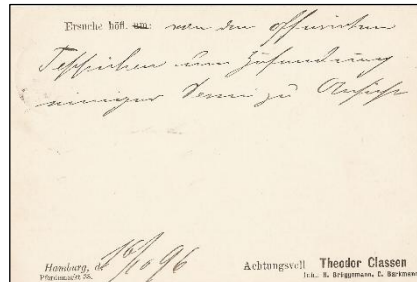 Ersuche höfl. um: von den offerirten
Teppichen um Zusendung
einiger Dessin zu Ansicht
Hamburg, d. 16/10 96
Pferdemarkt 38.
Achtungsvoll Theodor Classen
Inh.: H. Brüggemann, C. Barkmann